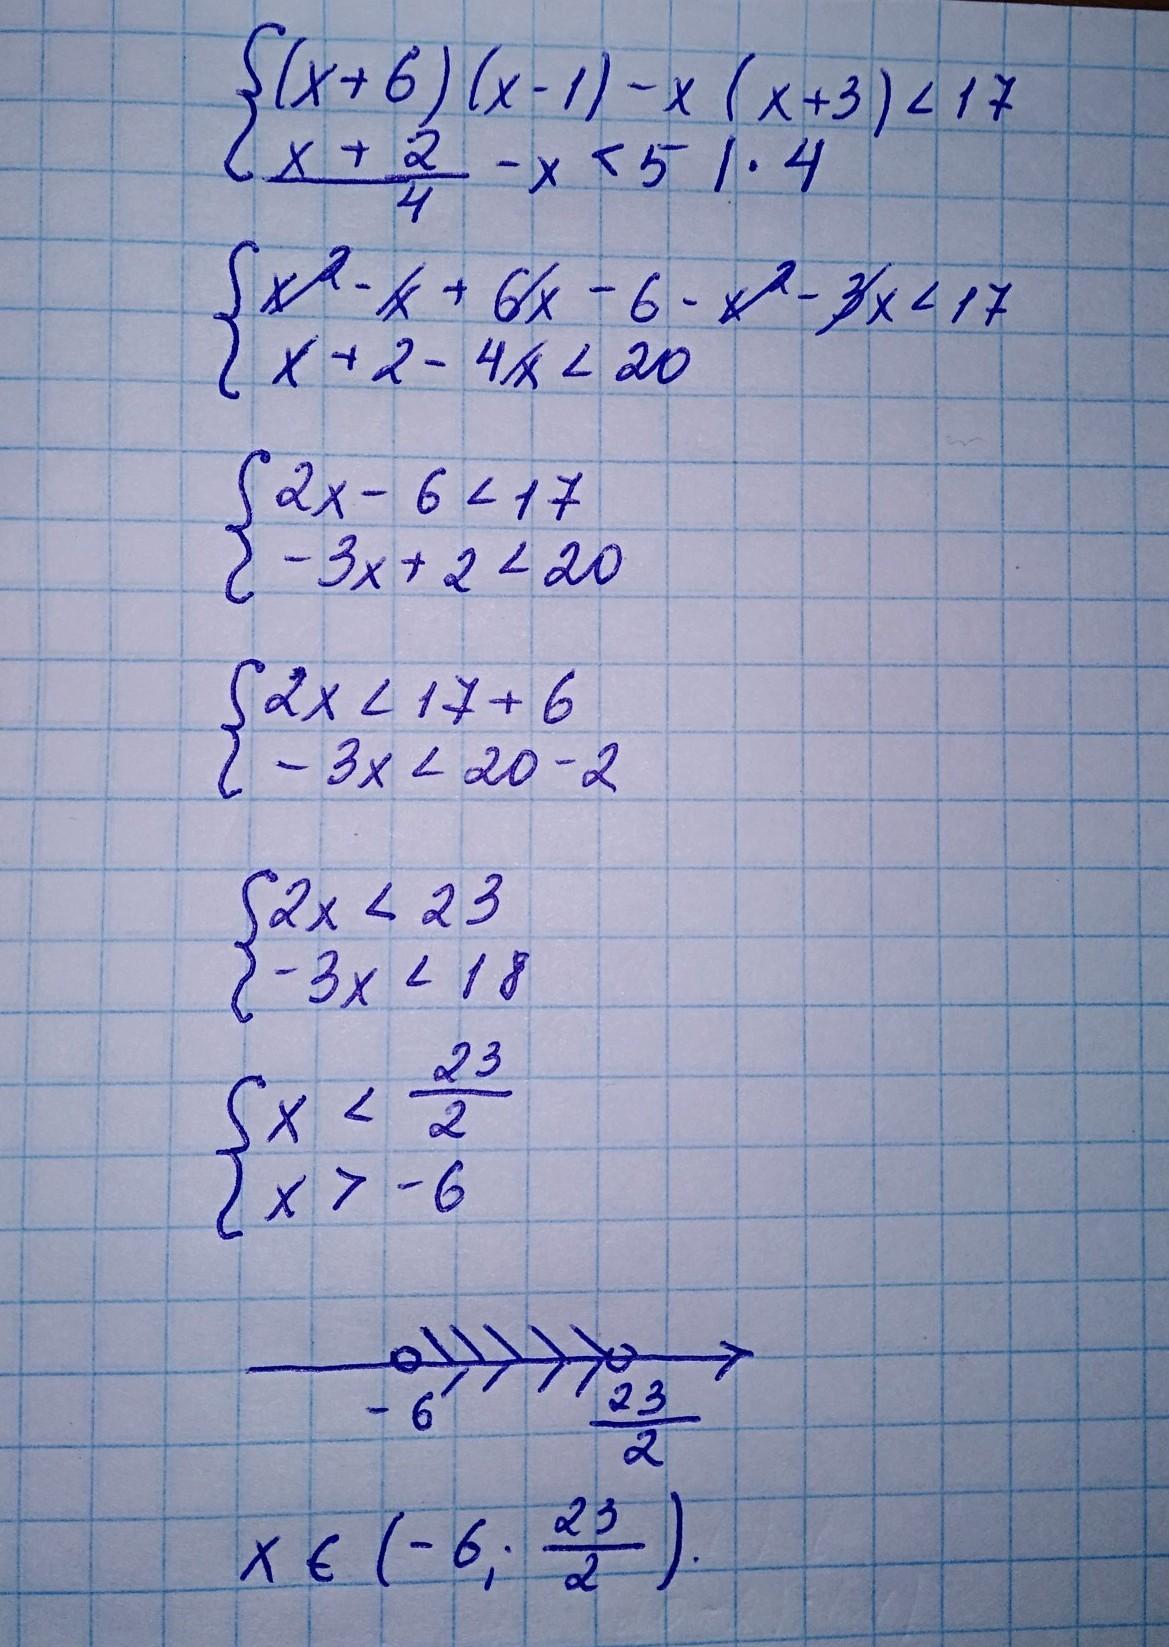 {(x+6)(x-1)-x(x+3)<17
{(x+2)/4 -x<5 |·4
{x²-x+6x-6-x²-3x<17
{x+2-4x<20
{2x-6<17
{-3x+2<20
{2x<17+6
{-3x<20-2
{2x<23
{-3x<18
{x<23/2
{x>-6
-6 23/2
x∈(-6; 23/2).